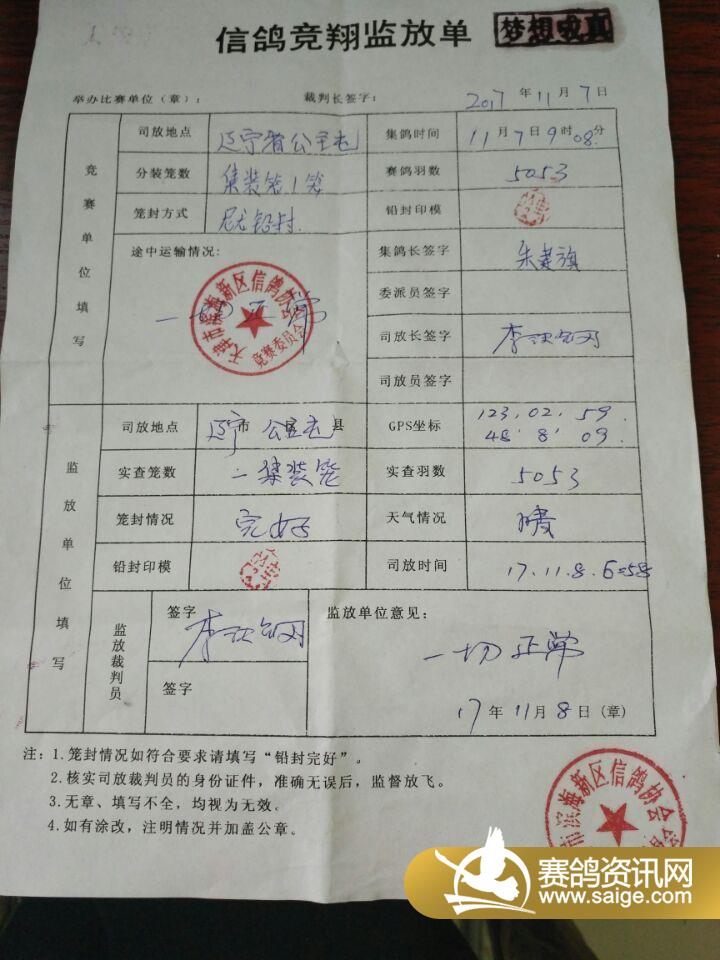 信鸽竞翔监放单 梦想成真
举办比赛单位（章）： 裁判长签字： 2017年11月7日
竞赛单位填写
司放地点 辽宁省公主屯 集鸽时间 11月7日9时08分
分装笼数 集装笼1笼 赛鸽羽数 5053
笼封方式 尼龙铅封 铅封印模
途中运输情况： 一切正常
天津市滨海新区信鸽协会 竞赛委员会
集鸽长签字
委派员签字
司放长签字
司放员签字
监放单位填写
司放地点 辽宁市公主屯区县 GPS坐标 123.02.59
48.8.09
实查笼数 一集装笼 实查羽数 5053
笼封情况 完好 天气情况
铅封印模 司放时间 17.11.8.6:58
监放裁判员
签字
签字
监放单位意见：
一切正常
17年11月8日（章）
注：1.笼封情况如符合要求请填写“铅封完好”。
2.核实司放裁判员的身份证件，准确无误后，监督放飞。
3.无章、填写不全，均视为无效。
4.如有涂改，注明情况并加盖公章。
市滨海新区信鸽协会
赛鸽资讯网
www.saige.com